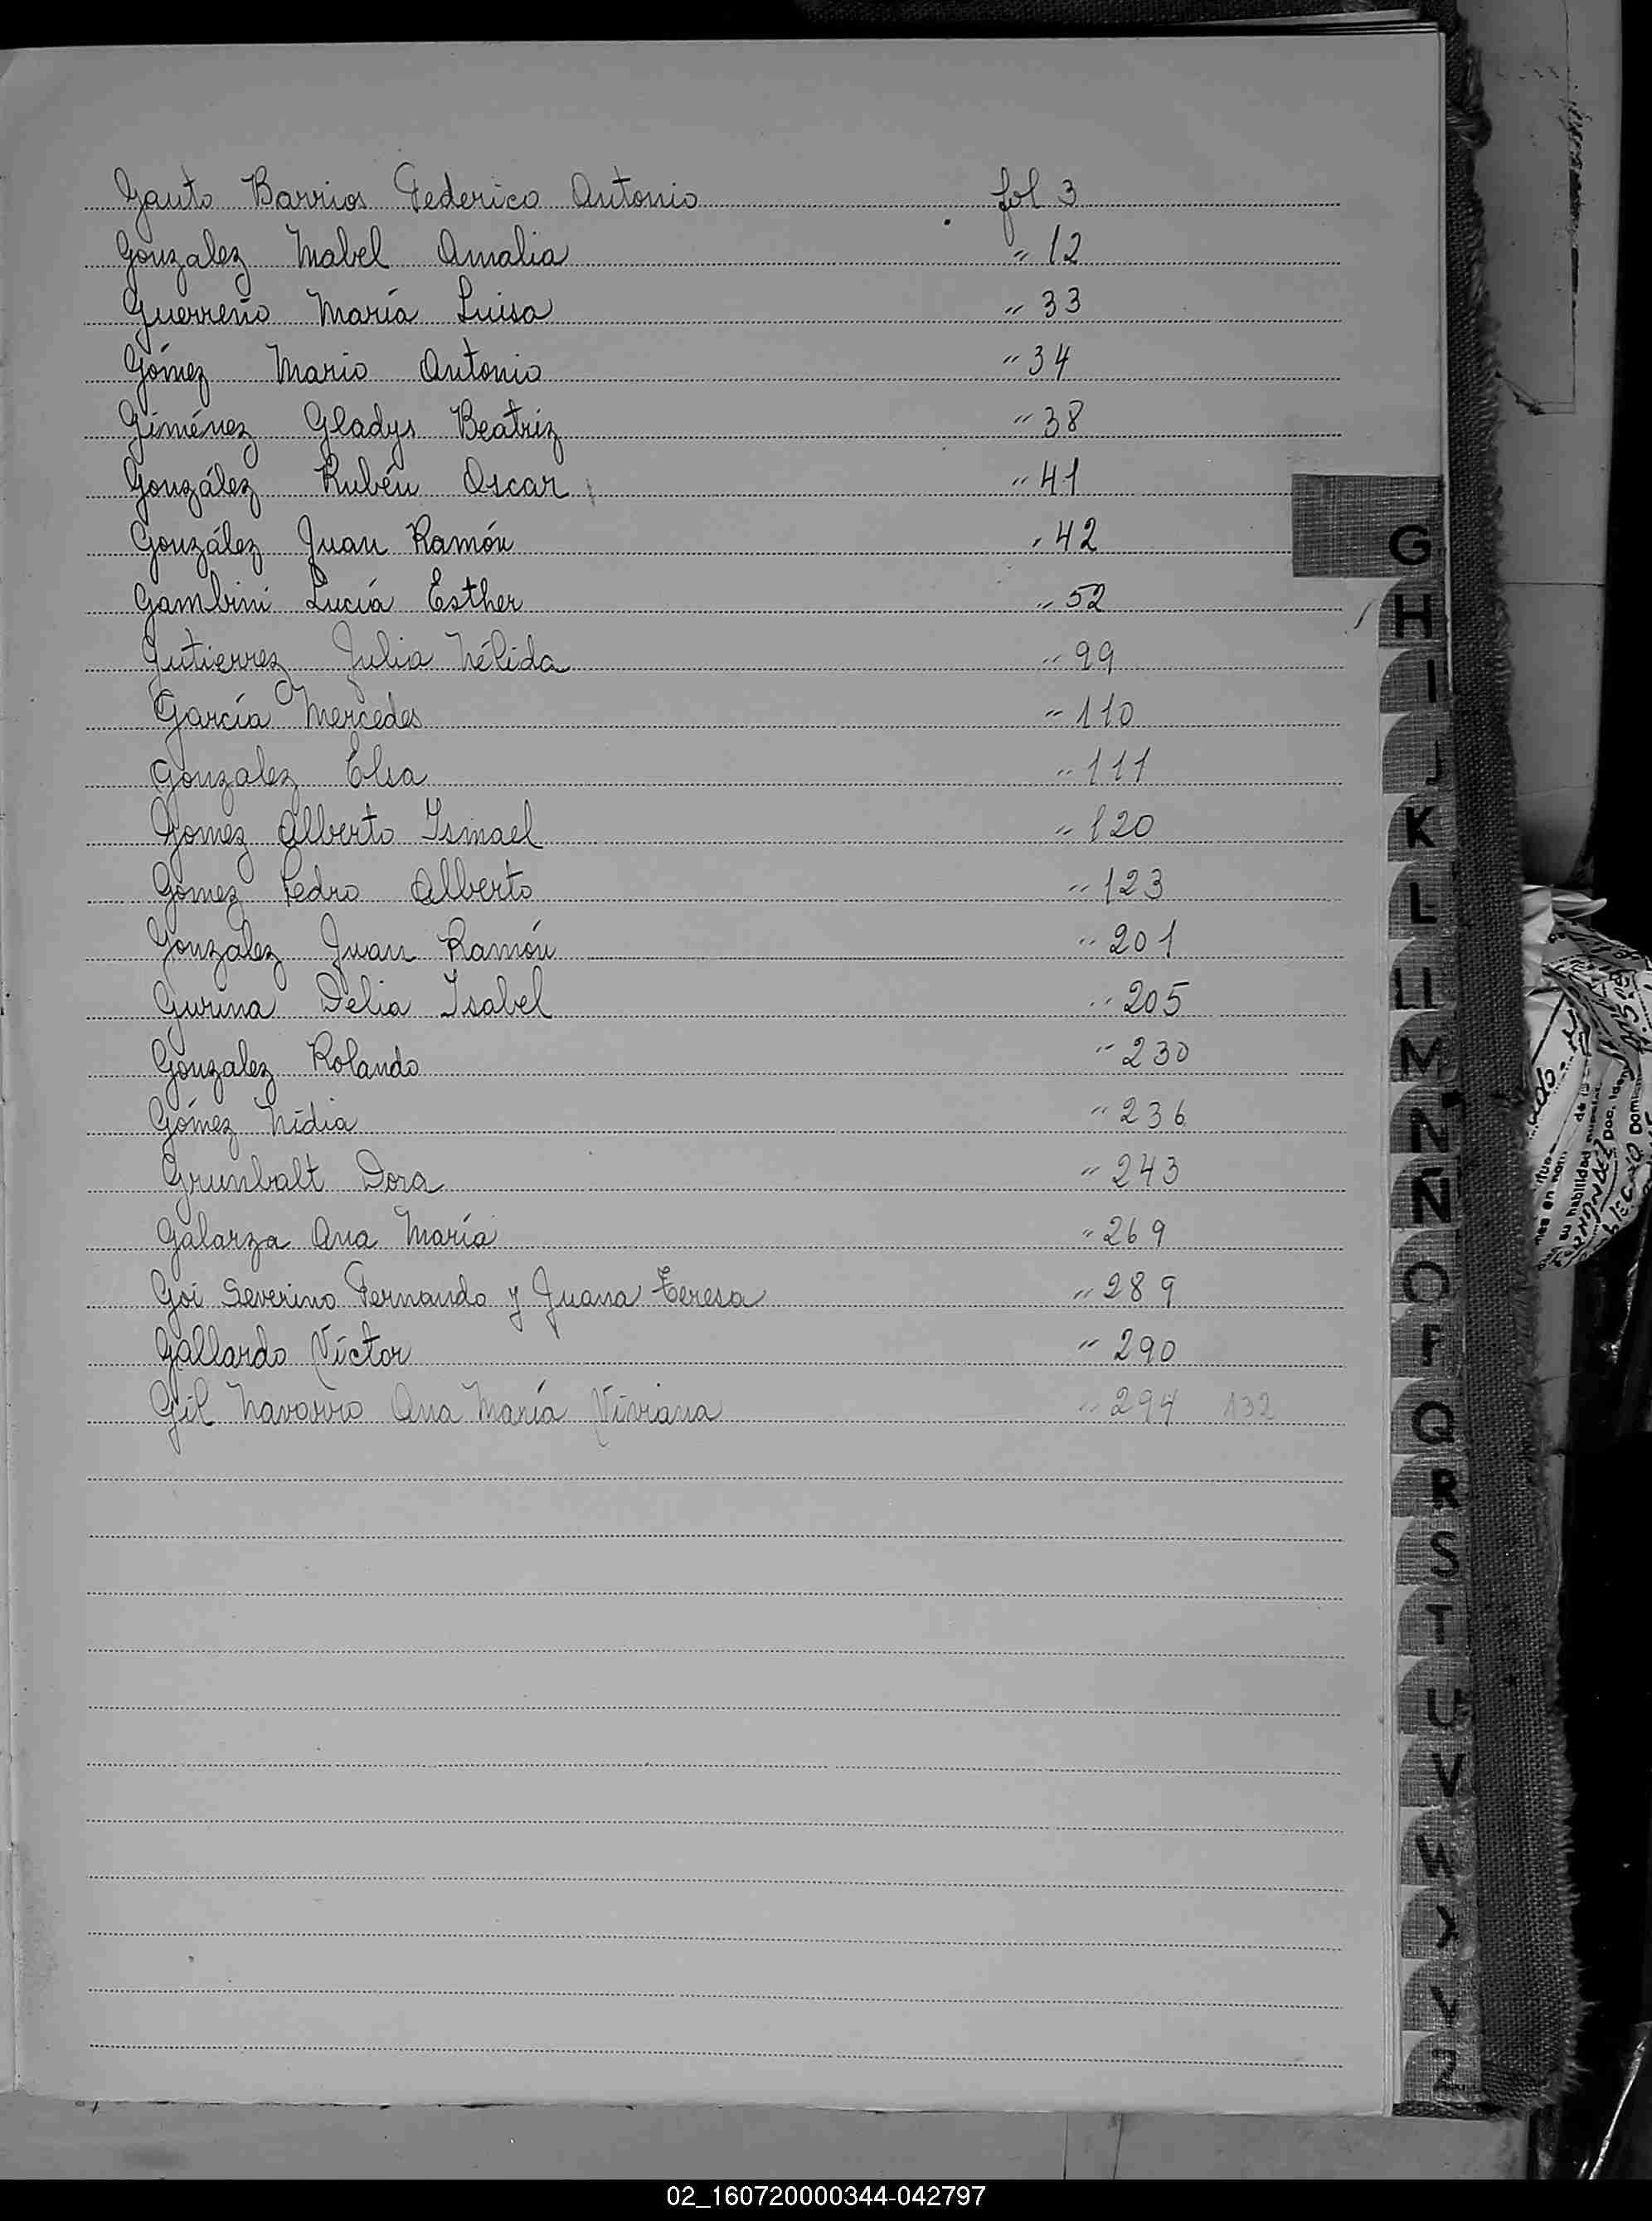 Gauto Barrios Federico Antonio fol 3
Gonzalez Mabel Amalia " 12
Guerreño María Luisa " 33
Gómez Mario Antonio " 34
Giménez Gladys Beatriz " 38
González Rubén Oscar " 41
González Juan Ramón " 42
Gambini Lucía Esther " 52
Gutierrez Julia Nélida " 99
García Mercedes " 110
Gonzalez Elsa " 111
Gomez Alberto Ismael " 120
Gomez Pedro Alberto " 123
Gonzalez Juan Ramón " 201
Gurina Delia Isabel " 205
Gonzalez Rolando " 230
Gómez Nidia " 236
Grunbalt Dora " 243
Galarza Ana María " 269
Goi Severino Fernando y Juana Teresa " 289
Gallardo Víctor " 290
Gil Navarro Ana María Viviana " 294 132
G
H
I
J
K
L
LL
M
N
Ñ
O
P
Q
R
S
T
U
V
W
X
Y
Z
02_160720000344-042797